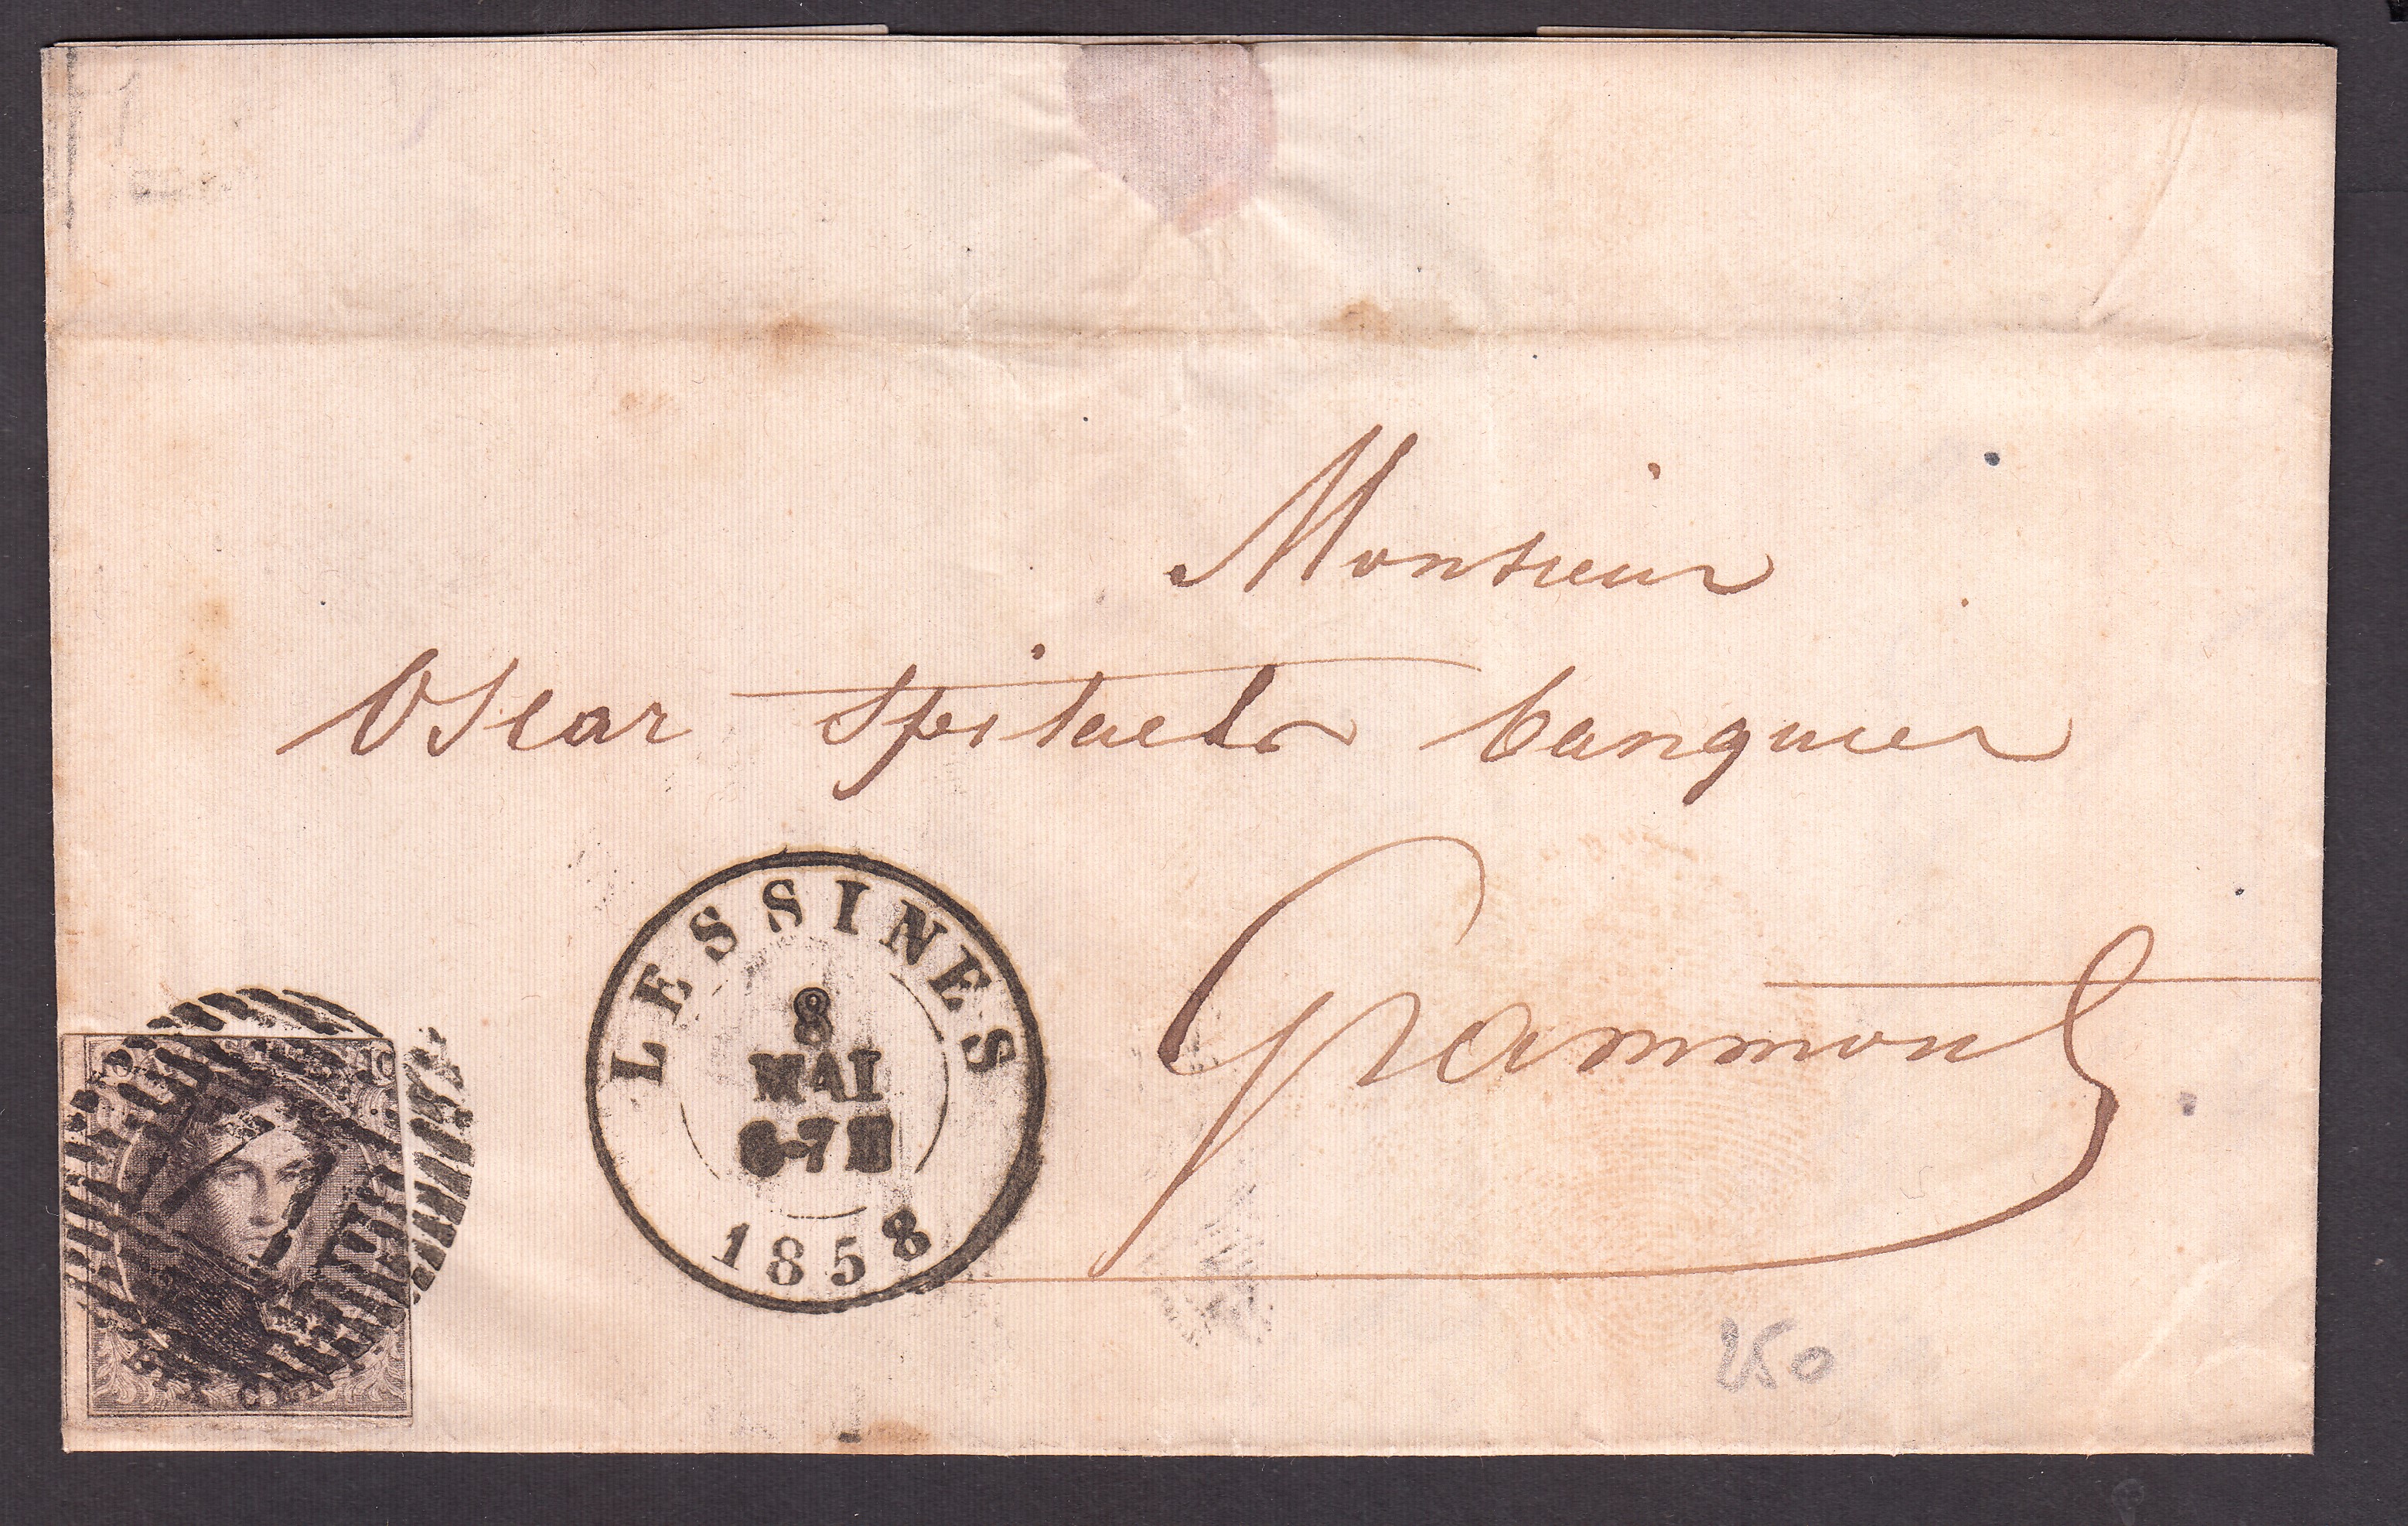 Monsieur
Oscar Spitaels banquier
Grammont
LESSINES
8
MAI
6-7
1858
10 10
DIX CEN
150